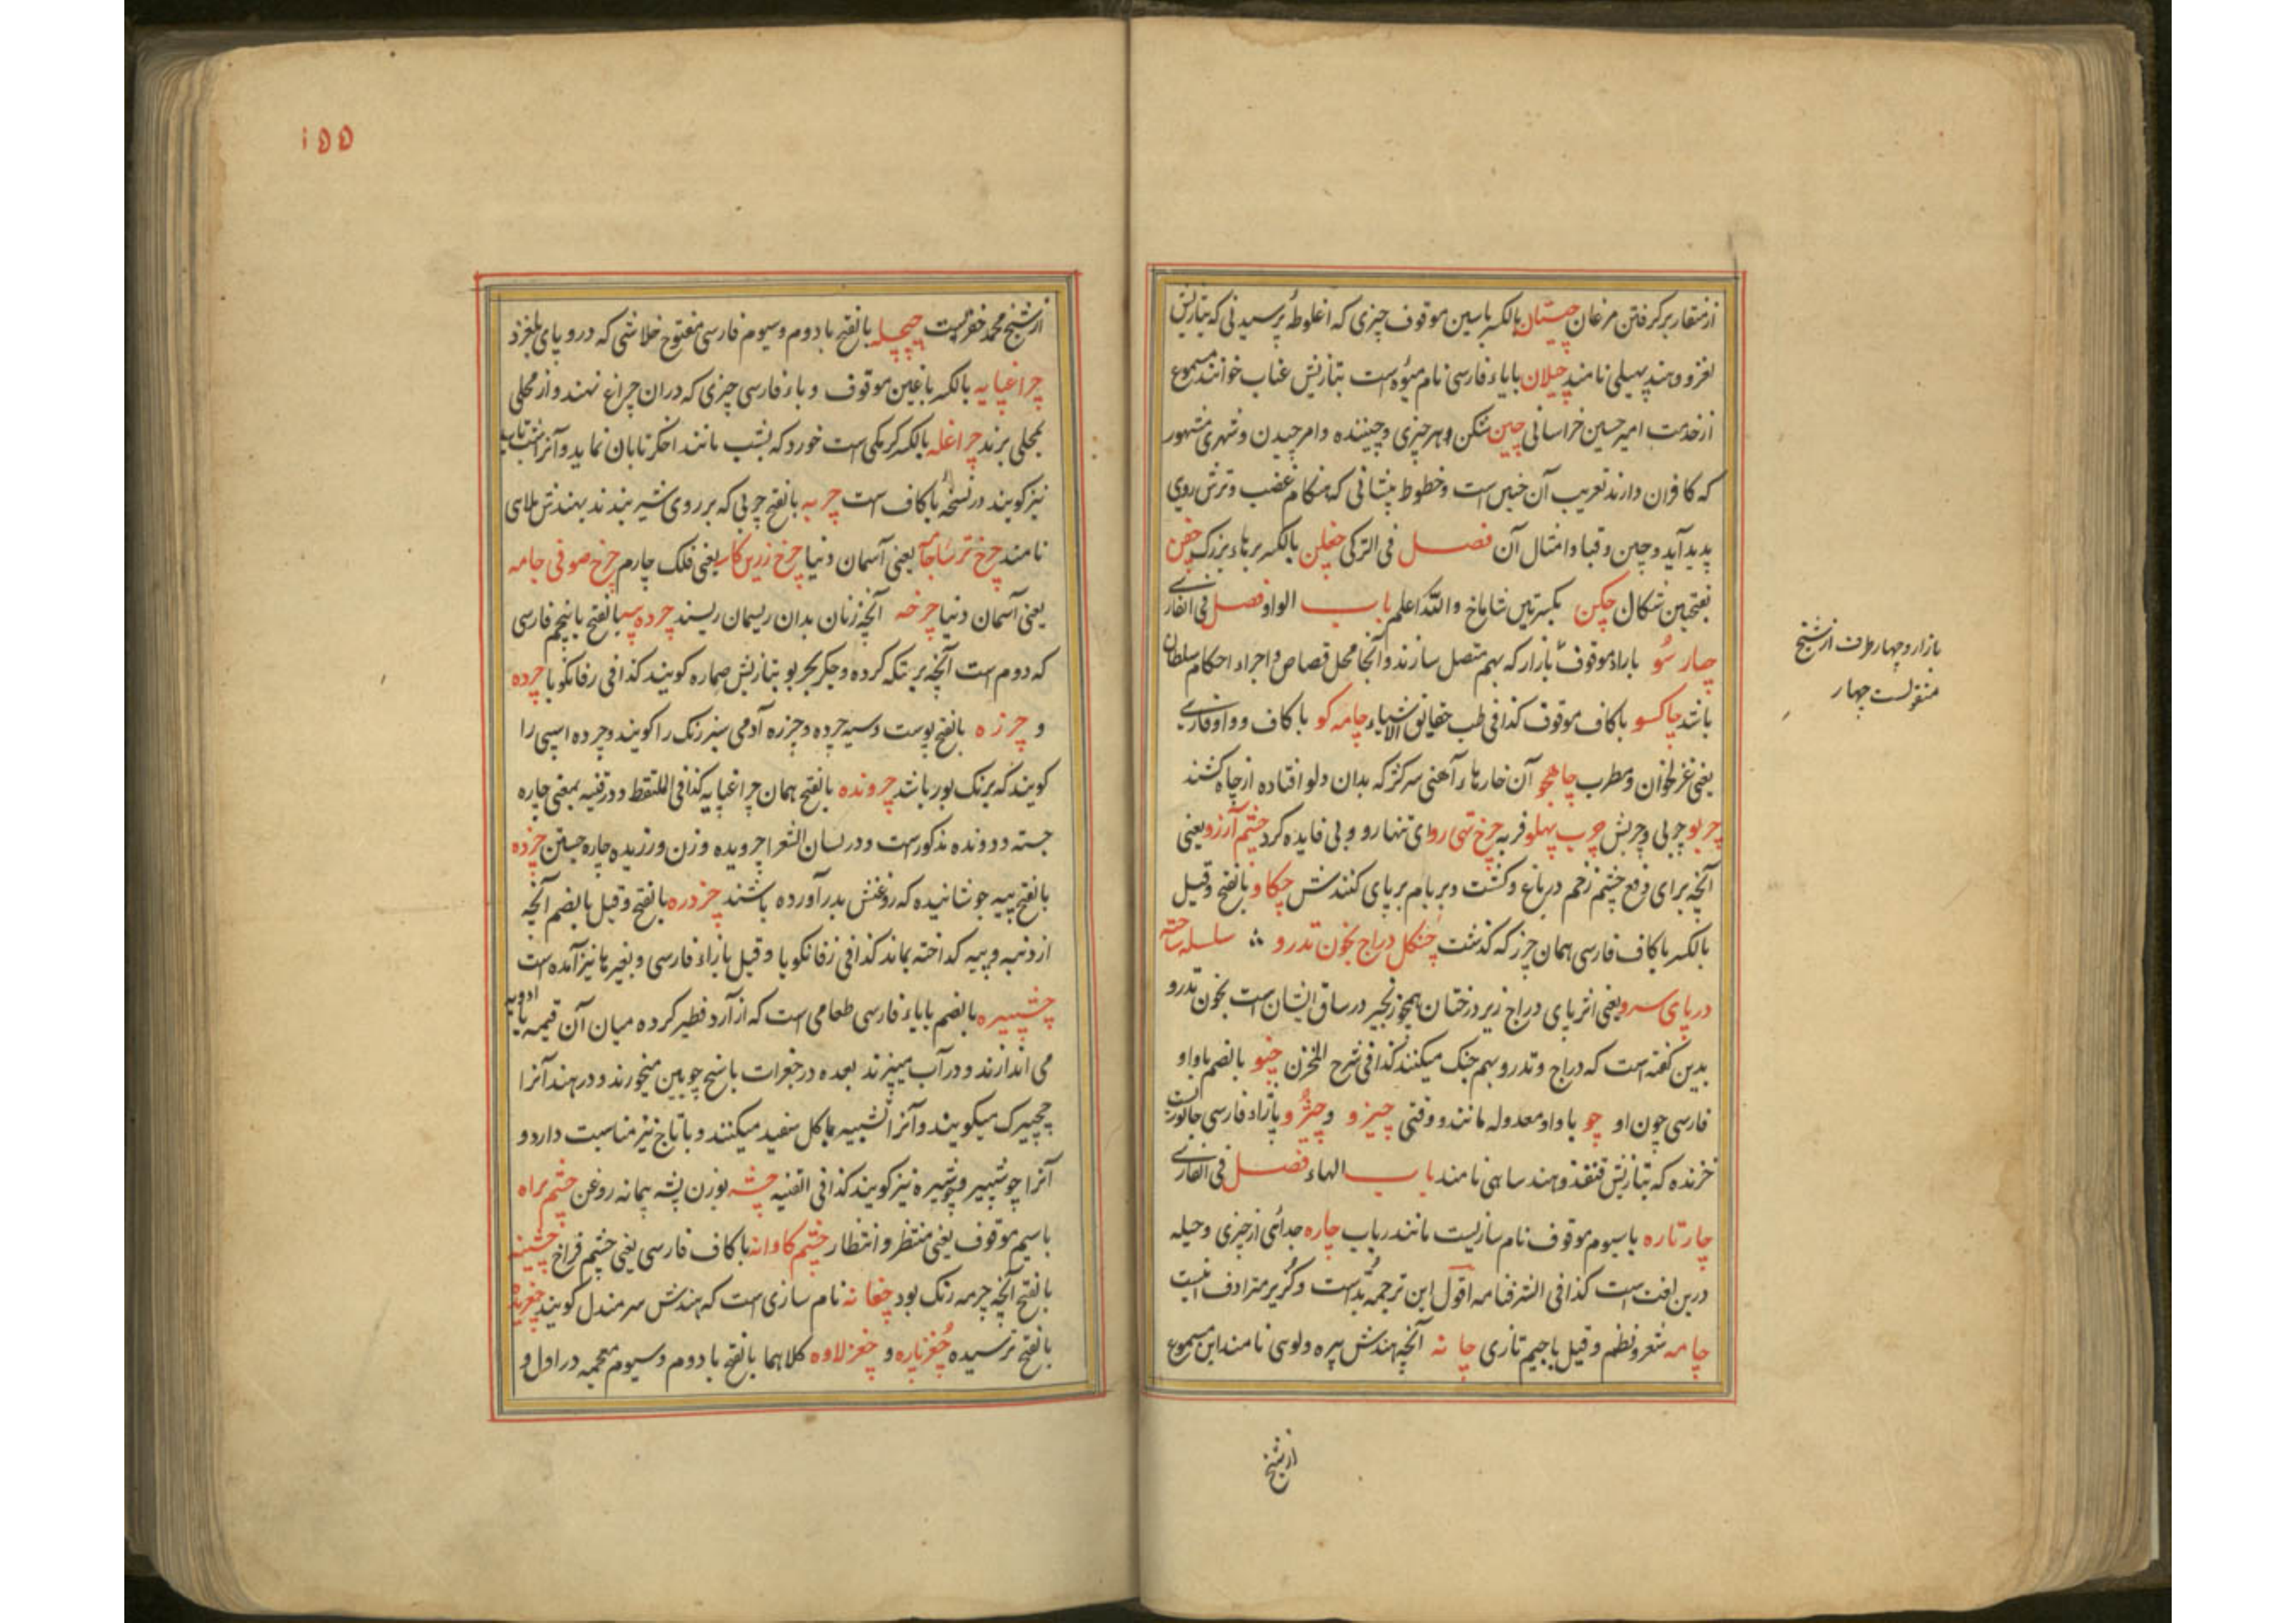 از منقار برکرفتن مرغان چیستان بالکسر باسین موقوف چیزی که اغلوطهٔ پرسیدنی که بتازیش
لغز و هند پهیلی نامند چیلان بایاء فارسی نام میوه است بتازیش عناب خوانند مسموع
از خدمت امیر حسین خراسانی چین شکن و هر چیزی و چیننده و امر چیدن و شهری مشهور
که کافران دارند تعریب آن خین است و خطوط پیشانی که هنکام غضب و ترش روی
پدید آید و چین و قبا و امثال آن فصل فی الترکی چقلن بالکسر برهاء بزرک چقن
بفتحین شکال چکن بکسرتین شاماخ والله اعلم باب الواو فصل فی الفارسی
چارسو باراء موقوف بازار که بهم متصل سازند و آنجا محل قصاص و اجراء احکام سلطان
باشد چاکسو باکاف موقوف کذا فی طب حقایق الاشیاء چامه کو باکاف و واو فارسی
یعنی غزلخوان و مطرب چاهجو آن خارهاء آهنی سرکژ که بدان دلو افتاده از چاه کشند
چربو چربی و چربش چرب پهلو فربه چرخ تهی رو ای تنها رو و بی فایده کرد چشم آرزو یعنی
آنچه برای دفع چشم زخم در باغ و کشت و بر بام بر پای کنندش چکاو بالفتح وقیل
بالکسر باکاف فارسی همان چرز که کذشت چنکل دراج بخون تدرو سلسله ساخته
در پای سرو یعنی اثر پای دراج زیر درختان همچو زنجیر در ساق ایشان است بخون تدرو
بدین کفته است که دراج و تدرو بهم جنک میکنند کذا فی شرح المخزن چنو بالضم باواو
فارسی چون او چو باواو معدوله مانند و وقتی چیزو و چژو بازاء فارسی جانوریست
خزنده که بتازیش قنفذ و هند ساهی نامند باب الهاء فصل فی الفارسی
چارتاره باسیوم موقوف نام سازیست مانند رباب چاره جدائی از چیزی و حیله
درین لغت است کذا فی الشرفنامه اقول این ترجمهٔ بُدّ است و کزیر مترادف نیست
چامه شعر و نظم وقیل باجیم تازی چانه آنچه هندش پیره و لوسی نامند این مسموع
بازار و چهار طرف از شیخ
منقولست چهار
از شیخ
۱۵۵
از شیخ محمد خضریست چپچله بالفتح بادوم وسیوم فارسی مفتوح خلاشی که درو پای بلغزد
چراغپایه بالکسر باغین موقوف و باء فارسی چیزی که دران چراغ نهند و از محلی
بمحلی برند چراغله بالکسر کرمکی است خورد که بشب مانند اخکر تابان نماید و آنرا شب تاب
نیز کویند در نسخه باکاف است چربه بالفتح چربی که بر روی شیر بندند بهندش ملای
نامند چرخ ترساجامه یعنی آسمان دنیا چرخ زرین کاسه یعنی فلک چارم چرخ صوفی جامه
یعنی آسمان دنیا چرخه آنچه زنان بدان ریسمان ریسند چرده سه بالفتح باپنجم فارسی
که دوم است آنچه بر تنکه کرده و جکر بجربو بتازیش صماره کویند کذا فی زفانکویا چرده
و چرزه بالفتح پوست و سیه چرده و چرزه آدمی سبز رنک را کویند و چرده اسپی را
کویند که برنک بور باشد چرونده بالفتح همان چراغپایه کذا فی الملتقط و در قنیه بمعنی چاره
جسته و دونده مذکورست و در لسان الشعرا چرویده وزن ورزیده چاره جستن چزده
بالفتح پیه جوشانیده که روغنش بدر آورده باشند چزدره بالفتح وقیل بالضم آنچه
از دنبه و پیه کداخته بماند کذا فی زفانکویا وقیل بازاء فارسی و بغیرها نیز آمده است
چشپیره بالضم بایاء فارسی طعامی است که از آرد فطیر کرده میان آن قیمه با ادویه
می اندازند و در آب میپزند بعده در جغرات باسیخ چوبین میخورند و در هند آنرا
چچپیرک میکویند و آنرا تشبیه بماکل سفید میکنند و باتاج نیز مناسبت دارد و
آنرا جوشپیر و پوشپیره نیز کویند کذا فی القنیه چشه بوزن پشه پیمانه روغن چشم براه
باسیم موقوف یعنی منتظر و انتظار چشم کاوانه باکاف فارسی یعنی چشم فراخ چشینه
بالفتح آنچه چرمه رنک بود چغانه نام سازی است که هندش سرمندل کویند چغریده
بالفتح ترسیده چغزپاره و چغزلاوه کلاهما بالفتح بادوم وسیوم معجمه در اول و